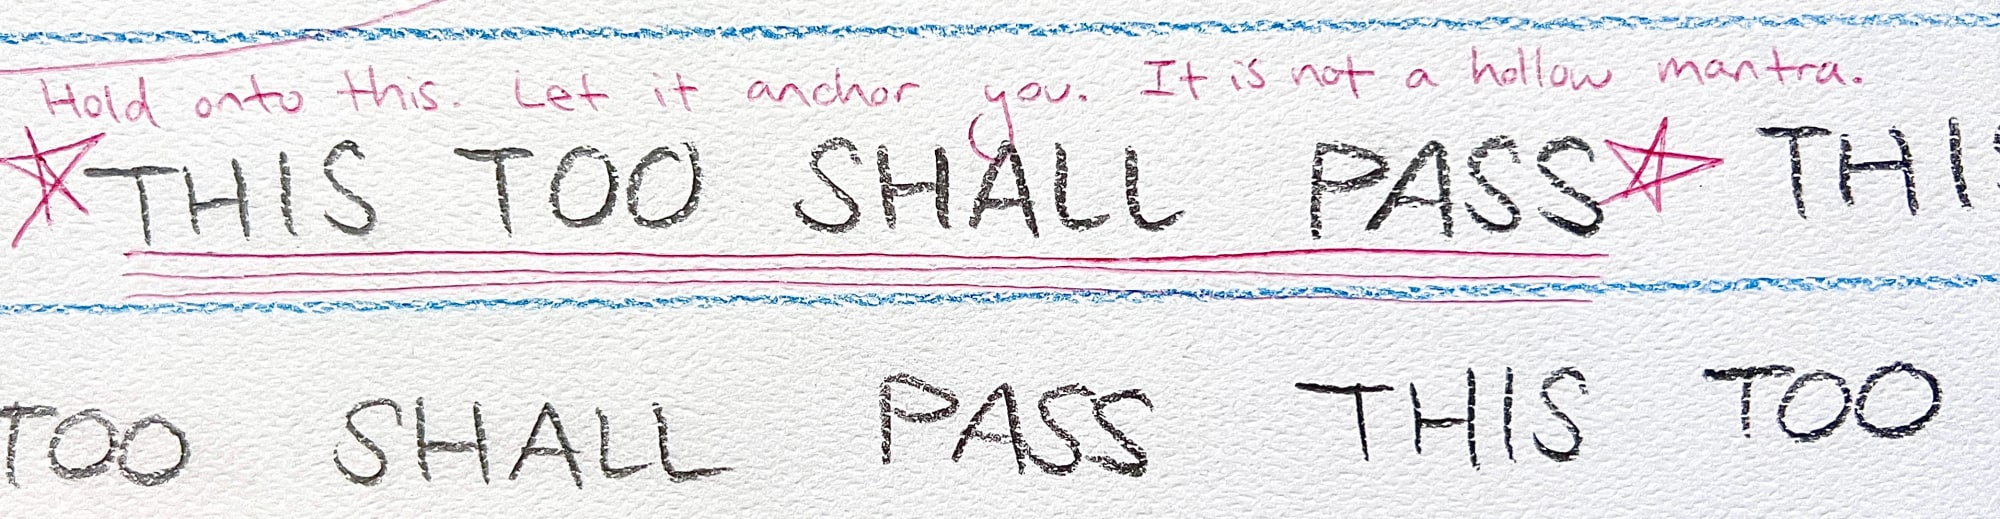 Hold onto this. Let it anchor you. It is not a hollow mantra.
THIS TOO SHALL PASS THIS
TOO SHALL PASS THIS TOO